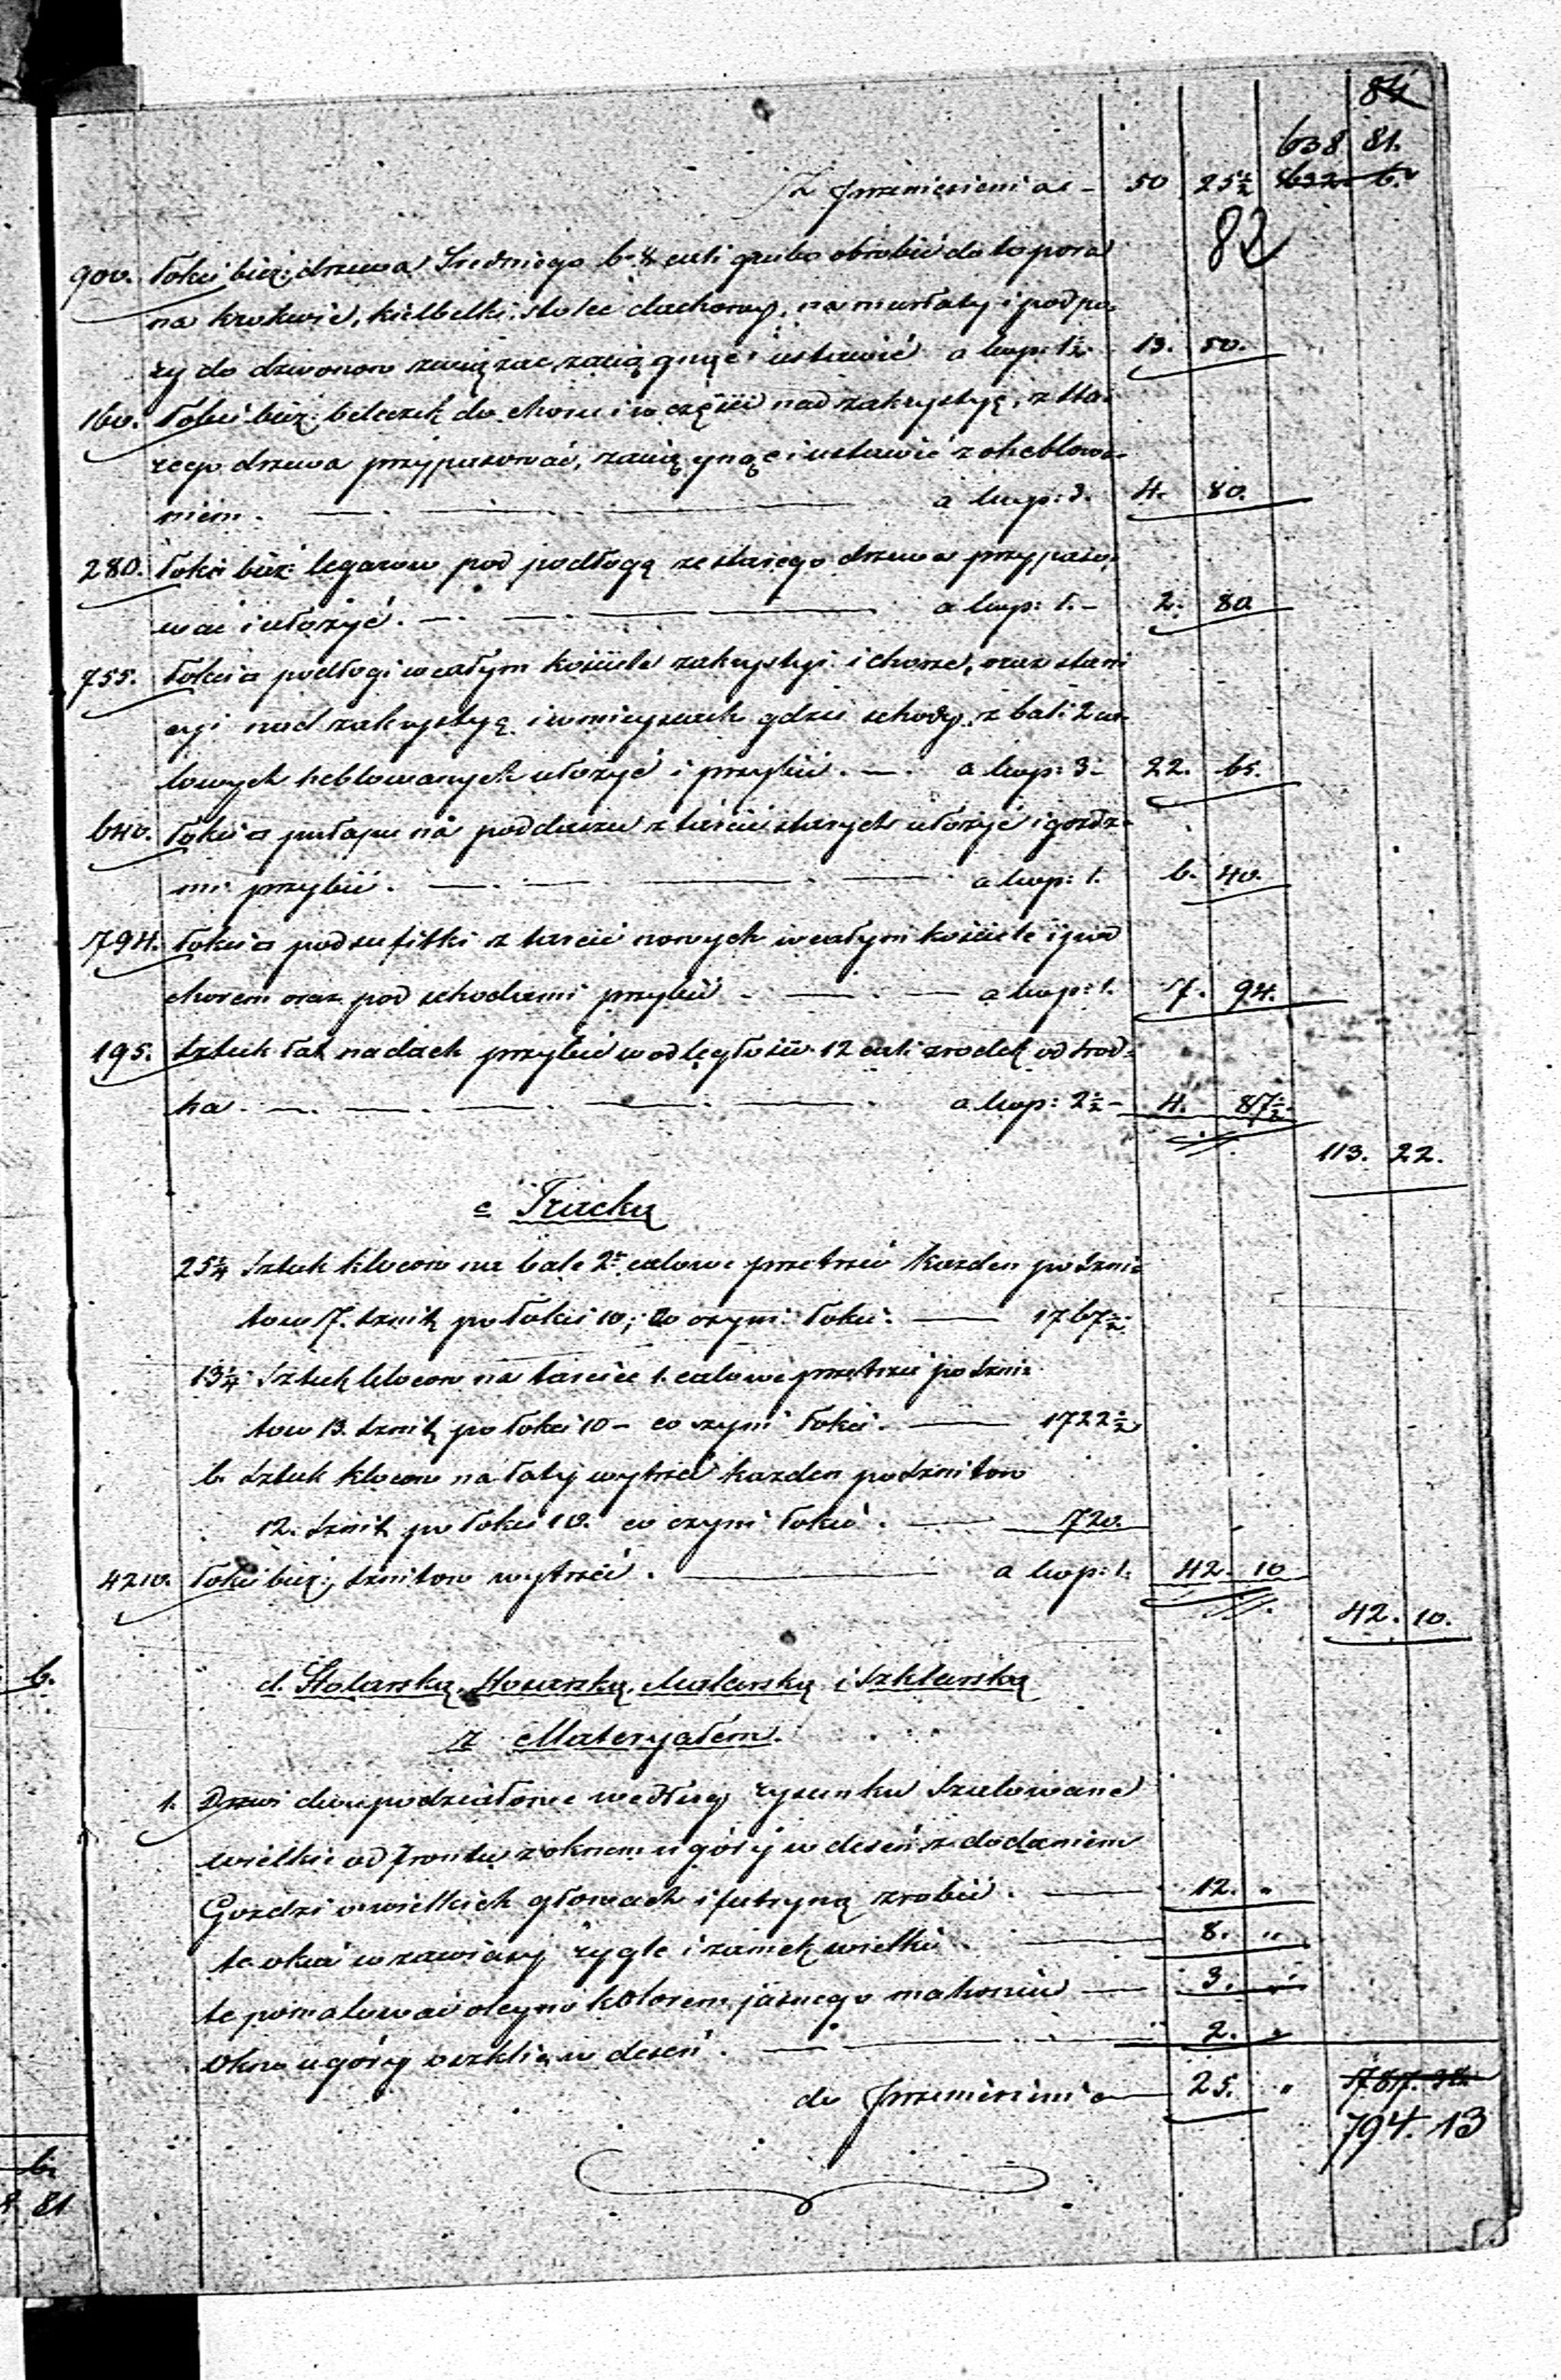 84
638 81.
Z Przeniesienia – 50 25½ 632 6.
82
900. Łokci bież: drzewa Średniego 6-8 cali grubo obrobić do topora
na krokwie, kielbelki, stolec dachowy, na murłaty i podpo-
ry do dzwonow związac, zaciągnąć i ustawić a kop: 1½. 13. 50.
160. Łokci bież: beleczek do choru i w części nad zakrystyę, z sta-
rego drzewa przypasować, zaciągnąc i ustawić z oheblowa-
niem. a kop: 3. 4. 80.
280. Łokci bież: legarow pod podłogą ze starego drzewa przypaso-
wac i ułożyć. a kop: 1. – 2. 80
755. Łokci □ podłogi w całym kościele zakrystyi i chorze, oraz
nad zakrystyą i w mieyscach gdzie schody, z bali 2 ca-
lowych heblowanych ułożyć i przybić. a kop: 3– 22. 65.
640. Łokci □ pułapu na poddaszu z tarcic starych ułożyć i gozdz-
mi przybić. a kop: 1. 6. 40.
794. Łokci □ podsufitki z tarcic nowych w całym kościele i pod
chorem oraz pod schodami przybić a kop: 1. 7. 94.
195. Sztuk łat na dach przybić w odległości 12 cali srodek od srod-
ka. a kop: 2½ – 4. 87½
113. 22.
c Tracką
25¼ Sztuk klocow na bale 2 calowe przetrzeć kazden po szni-
tow 7. sznit po łokci 10; co czyni łokci. 1767½
13¼ Sztuk klocow na tarcice 1. calowe przetrzeć po szni-
tow 13. sznit po łokci 10 – co czyni łokci. 1722½
6. Sztuk klocow na łaty wytrzeć kazden po sznitow
12. sznit po łokci 10. co czyni łokci. 720.
4210. Łokci bież: sznitow wytrzeć. a kop: 1. 42. 10
42. 10.
d. Stolarską, Slosarską, Malarską i Szklarską
z Materyałem.
1. Drzwi dwupodziałowe według rysunku Szalowane
wielkie od Frontu z oknem u góry w deseń z dodaniem
Gozdzi o wielkich głowach i futryną zrobić. 12. "
te okuć w zawiasy rygle i zamek wielki. 8. "
te pomalować oleyno kolorem jasnego mahoniu 3. "
Okno u góry oszklić w deseń. 2. "
do Przeniesienia 25. " 787. 38.
794. 13
6.
6.
81